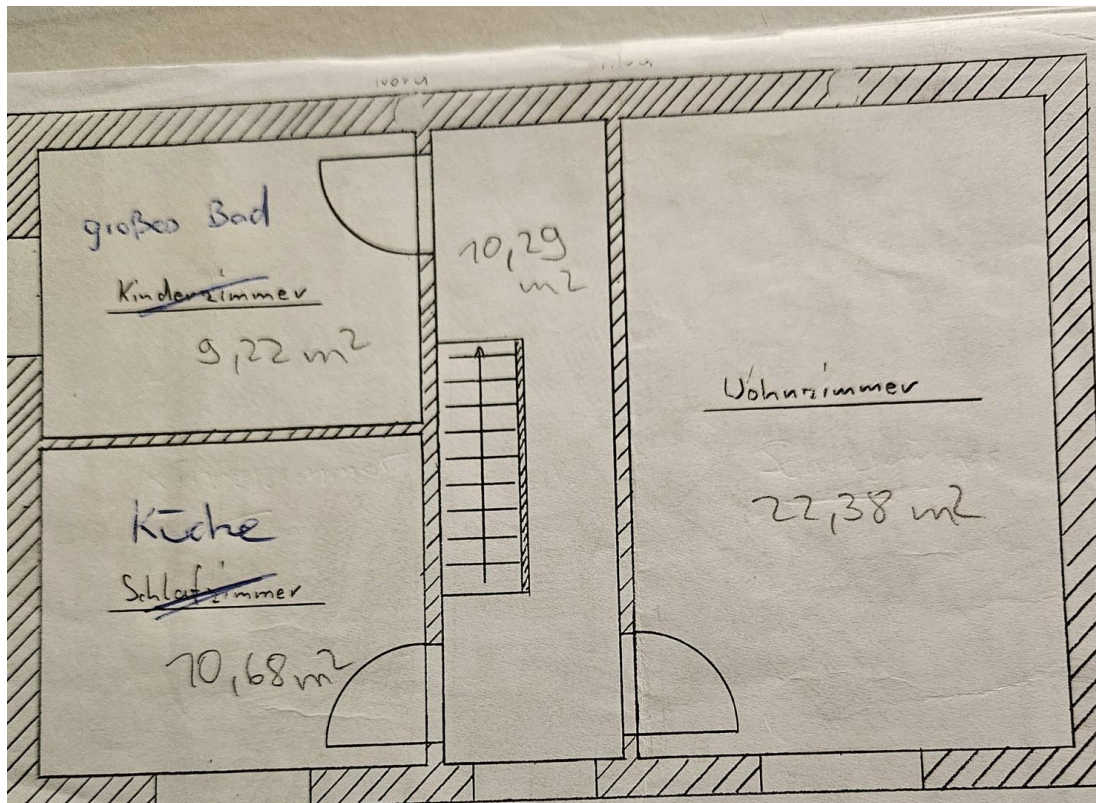 großes Bad
Kinderzimmer
9,22 m²
10,29
m²
Wohnzimmer
22,38 m²
Küche
Schlafzimmer
10,68 m²